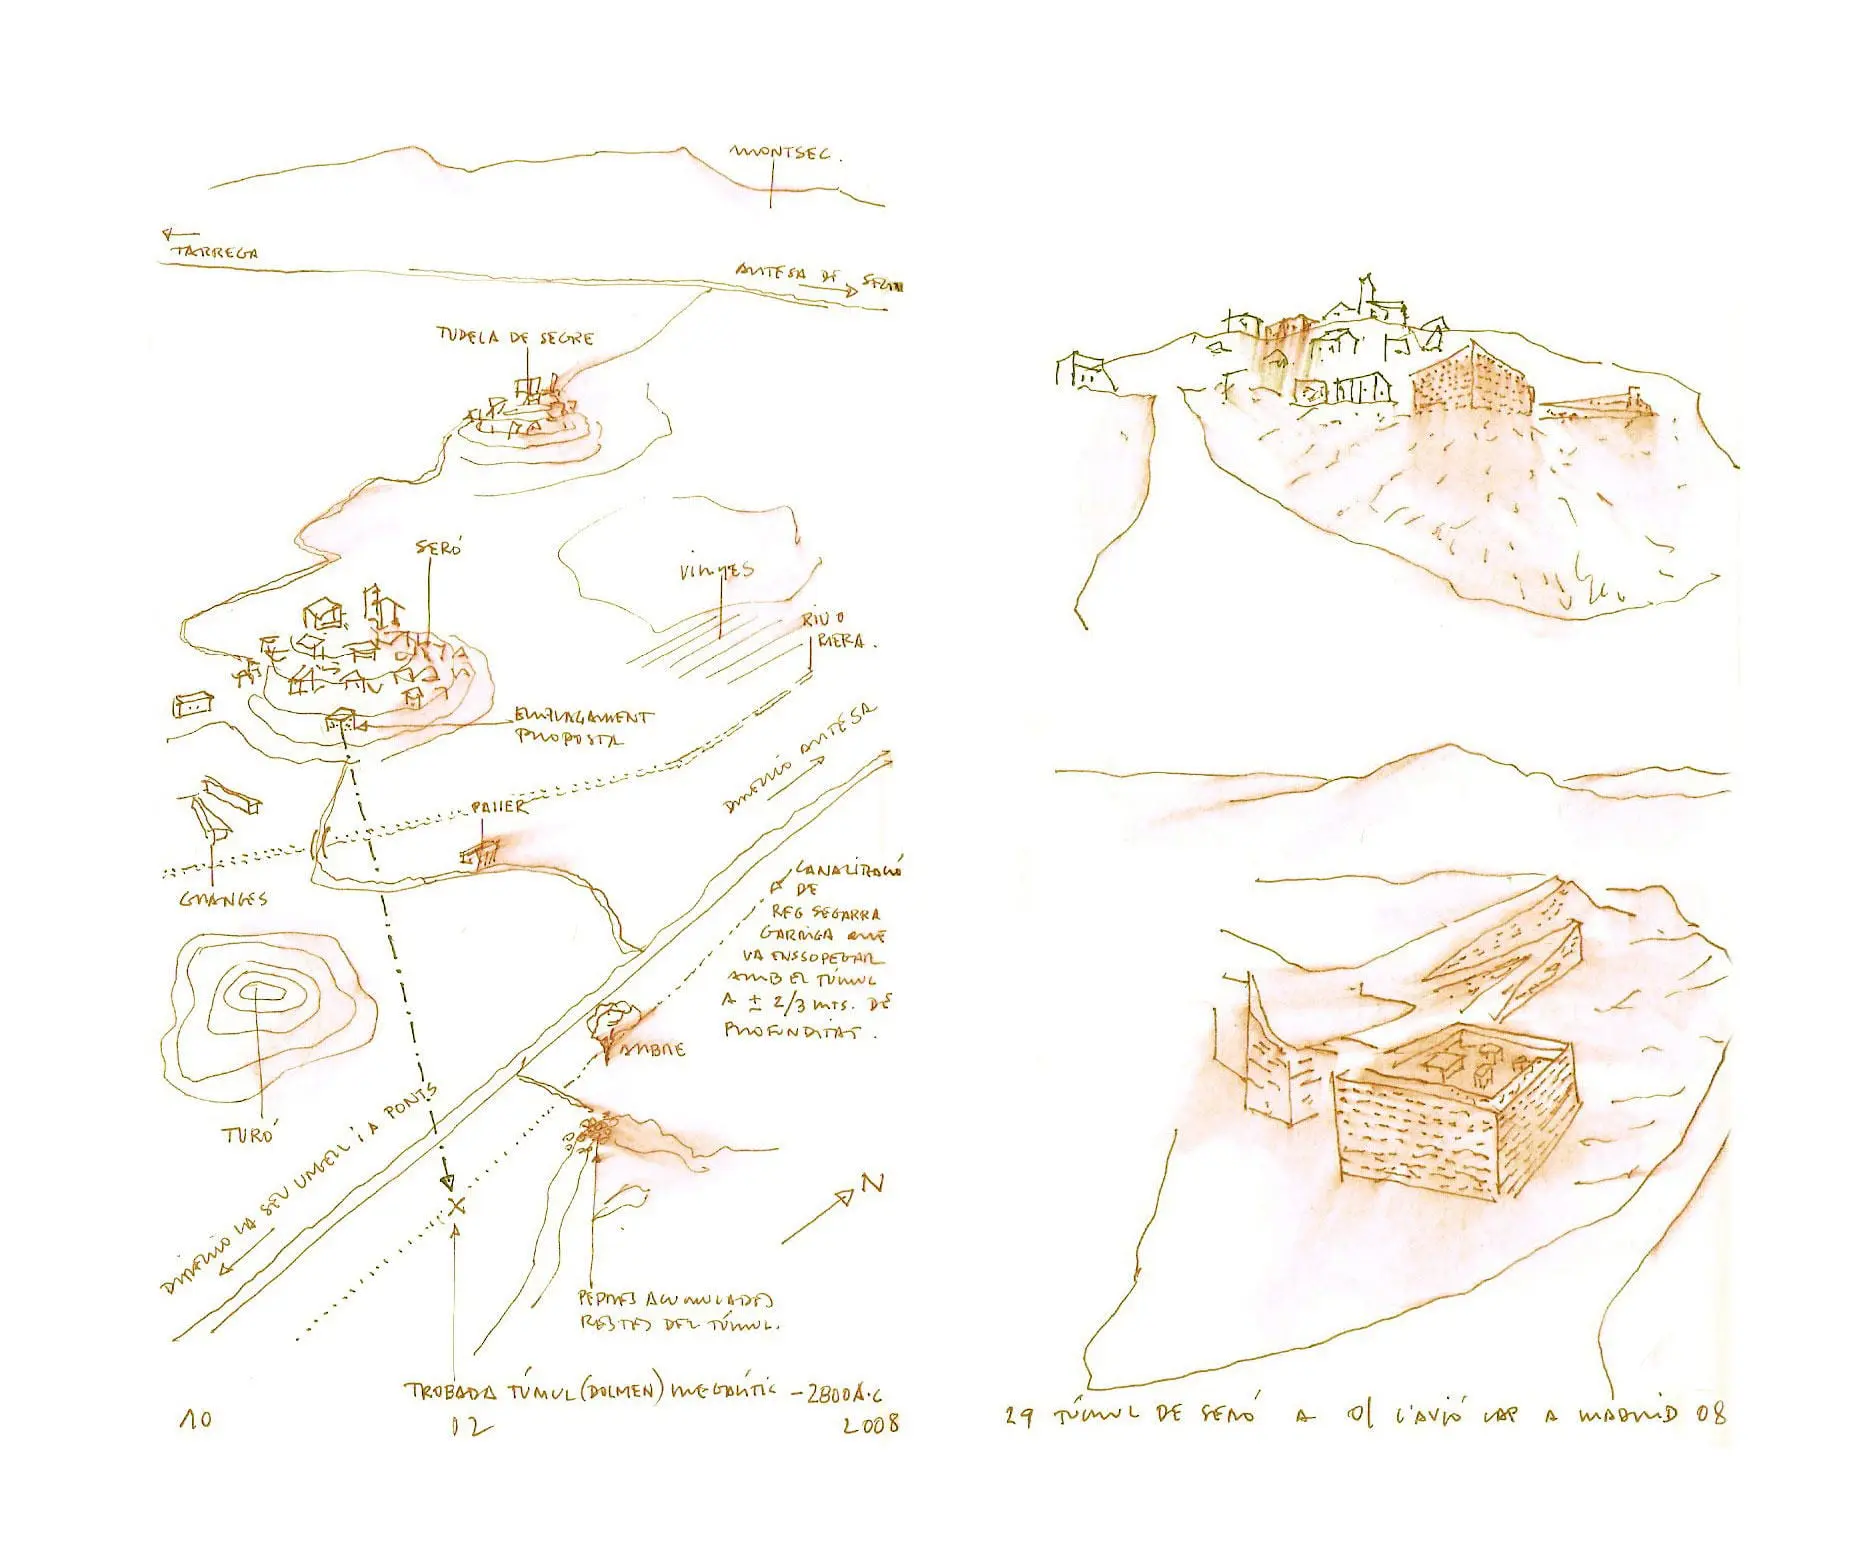 MONTSEC.
TARREGA
ARTESA DE SEGRE
TUDELA DE SEGRE
SERÓ
VINYES
RIU O
RIERA.
EMPLAÇAMENT
PROPOSTA
DIRECCIÓ ARTESA
PALLER
GRANGES
CANALITZACIÓ
DE
REG SEGARRA
GARRIGA QUE
VA ENSSOPEGAR
AMB EL TÚMUL
A ± 2/3 MTS. DE
PROFUNDITAT.
ARBRE
TURÓ
DIRECCIÓ LA SEU URGELL I A PONTS
N
PEDRES ACUMULADES
RESTES DEL TÚMUL.
TROBADA TÚMUL (DOLMEN) MEGALÍTIC - 2800 A.C
10 02 2008
29 TÚMUL DE SERÓ A 01 L'AVIÓ CAP A MADRID 08